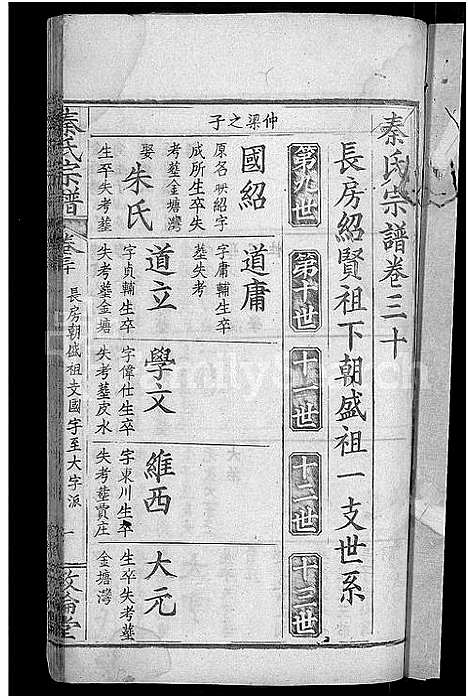 秦氏宗譜卷三十
長房紹賢祖下朝盛祖一支世系
第九世
第十世
十一世
十二世
十三世
仲梁之子
國紹
原名映紹字
成所生卒失
考塟金塘灣
娶朱氏
生卒失考塟
道庸
字庸輔生卒
塟失考
道立
字貞輔生卒
失考塟金塘
學文
字偉仕生卒
失考塟皮水
維西
字東川生卒
失考塟賈庄
大元
生卒失考塟
金塘灣
秦氏宗譜
卷三十
長房朝盛祖支國字至大字派
一
敦倫堂